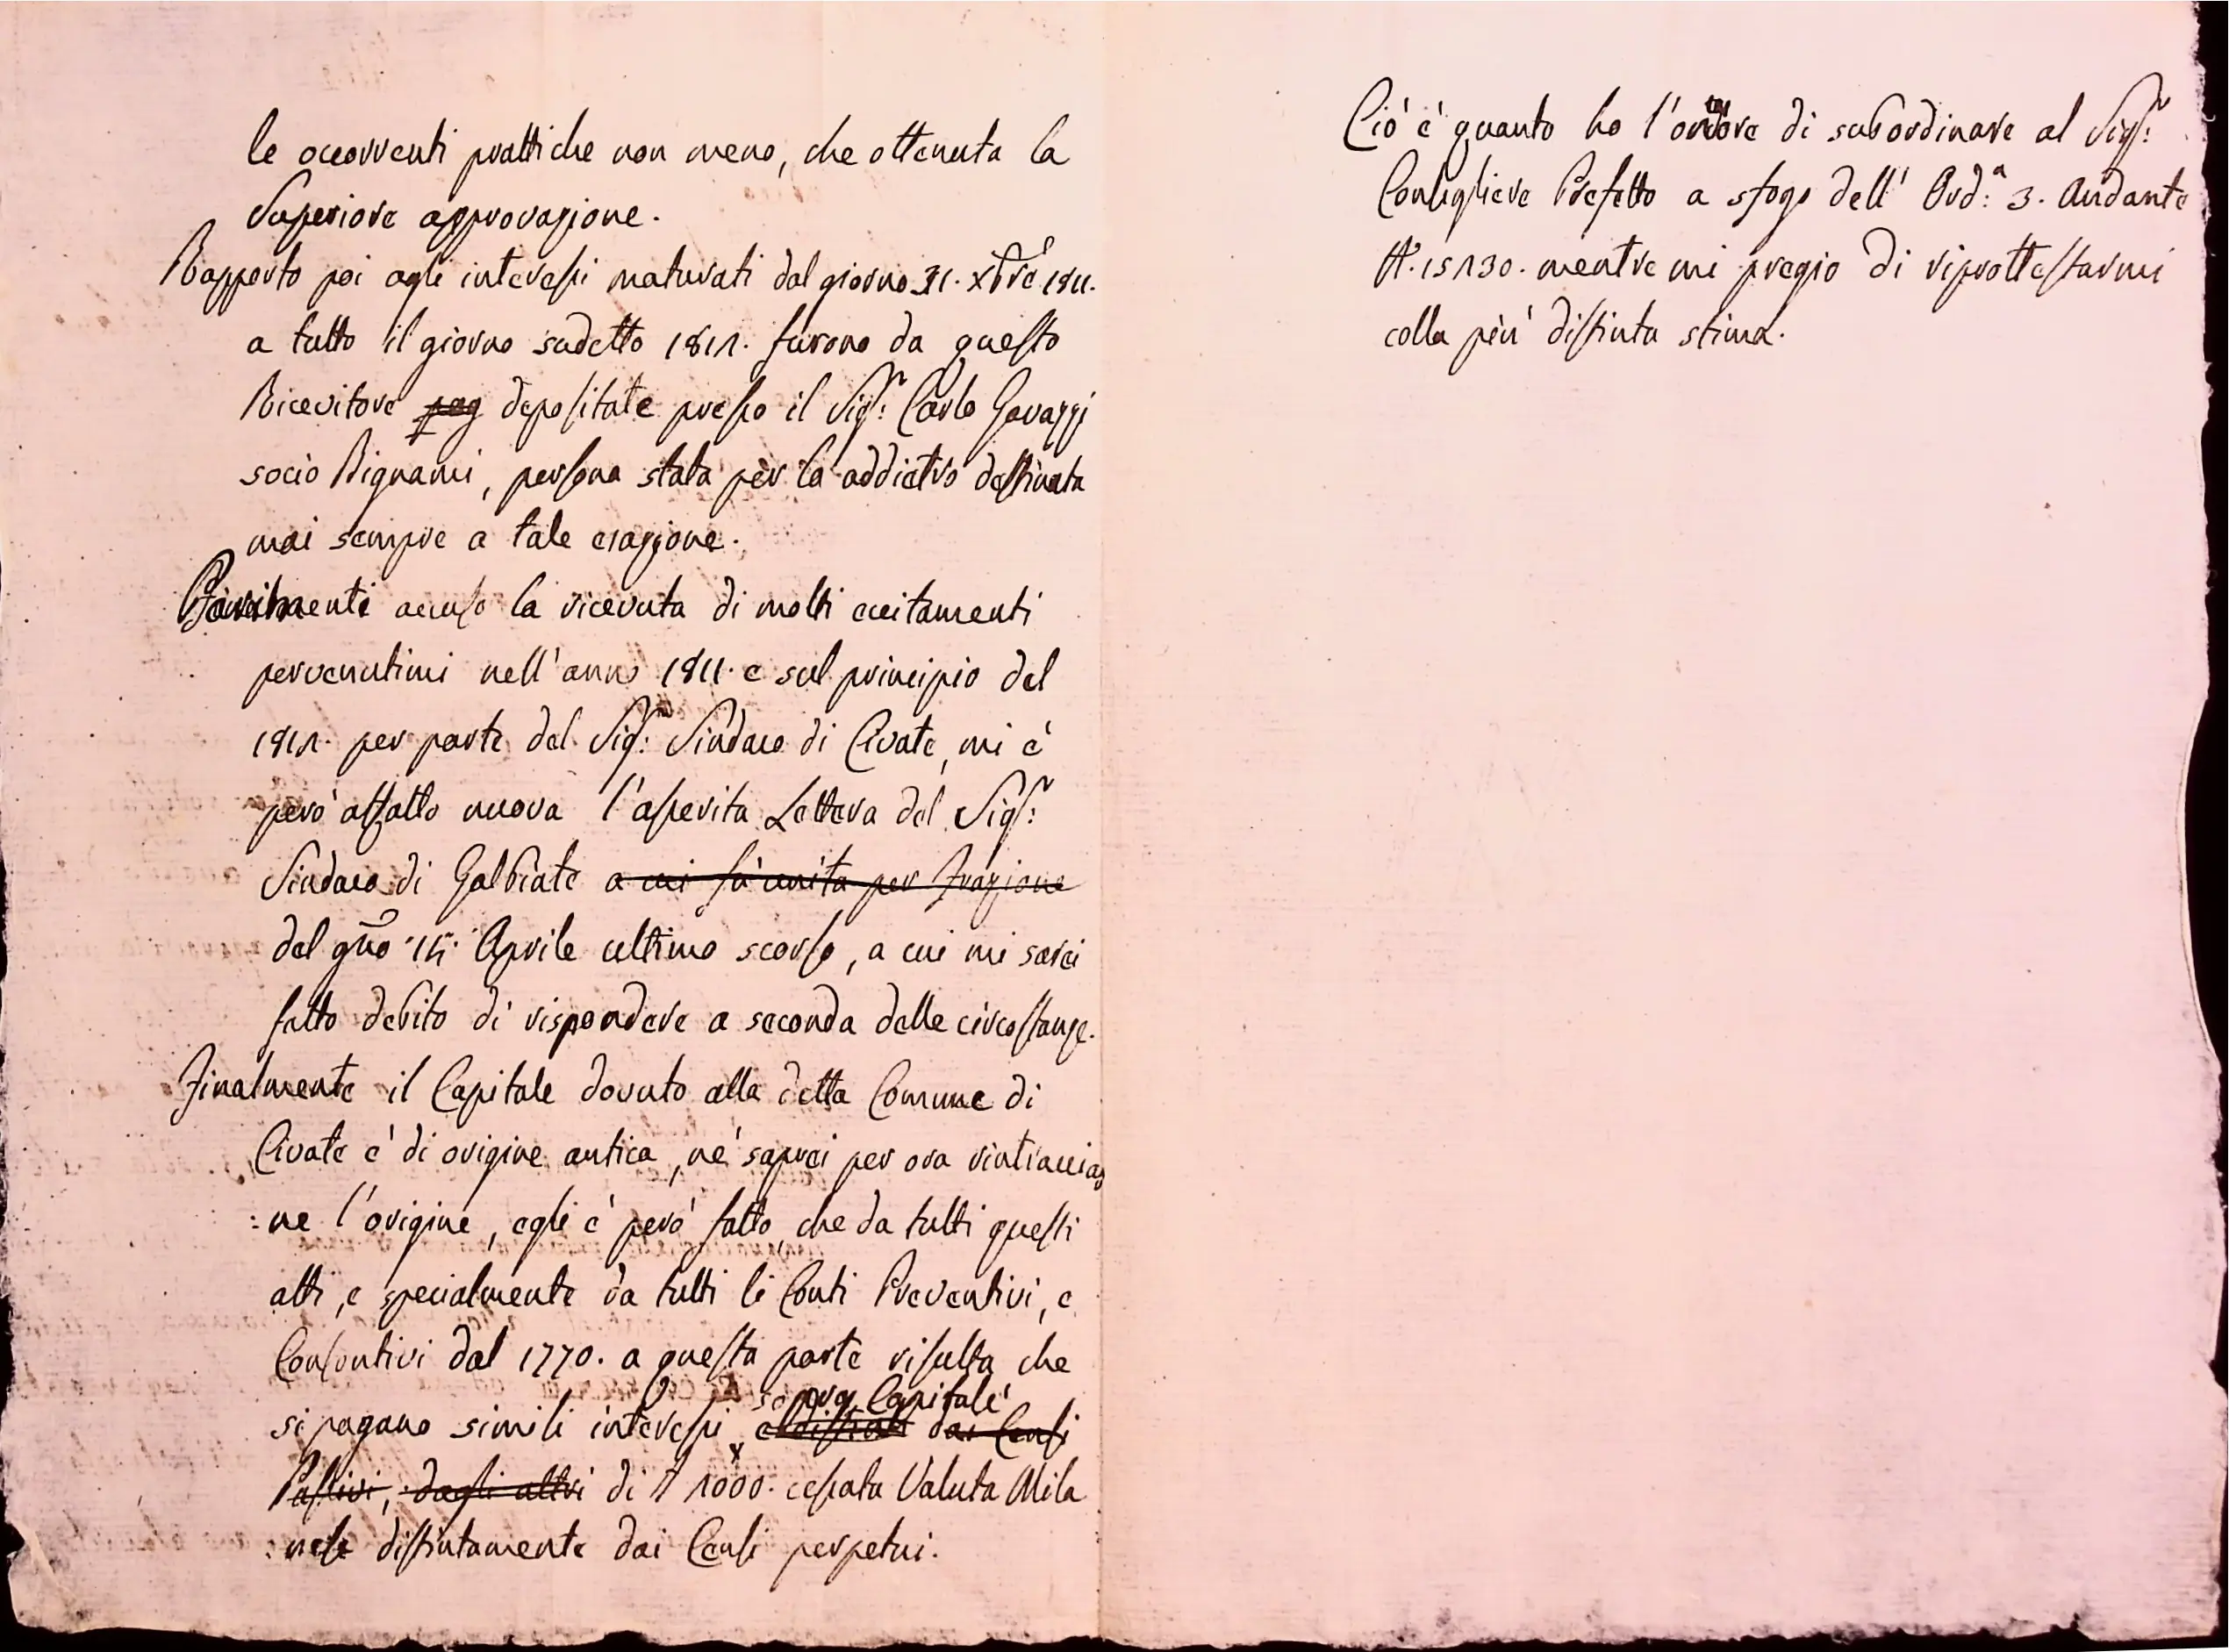 le occorrenti prattiche non meno, che ottenuta la
Superiore approvazione.
Rapporto poi agli interessi maturati dal giorno 31. Xbre 1811.
a tutto il giorno sudetto 1812. furono da questo
Ricevitore pag depositate presso il Sigr: Carlo Gavazzi
socio Bignami, persona stata per la addietro destinata
mai sempre a tale esazione.
Parimenti accuso la ricevuta di molti eccitamenti
pervenutimi nell'anno 1811. e sul principio del
1812. per parte del Sigr: Sindaco di Civate, mi è
però affatto nuova l'asserita Lettera del Sigr:
Sindaco di Galbiate a cui fù unita per Frazione
del gno 15. Aprile ultimo scorso, a cui mi sarei
fatto debito di rispondere a seconda delle circostanze.
Finalmente il Capitale dovuto alla detta Comune di
Civate è di origine antica, nè saprei per ora rintracciar
:ne l'origine, egli è però fatto, che da tutti questi
atti, e specialmente da tutti li Conti Preventivi, e
Consontivi dal 1770. a questa parte risulta che
sopra Capitale
si pagano simili interessi dai Censi
Passivi, dagli altri di £ 2000. cessata Valuta Mila
:nese distintamente dai Censi perpetui.
Ciò è quanto ho l'onore di subordinare al Sigr:
Consigliere Prefetto a sfogo dell' Ord:a 3. Andante
N. 15230. mentre mi pregio di riprottestarmi
colla più distinta stima.